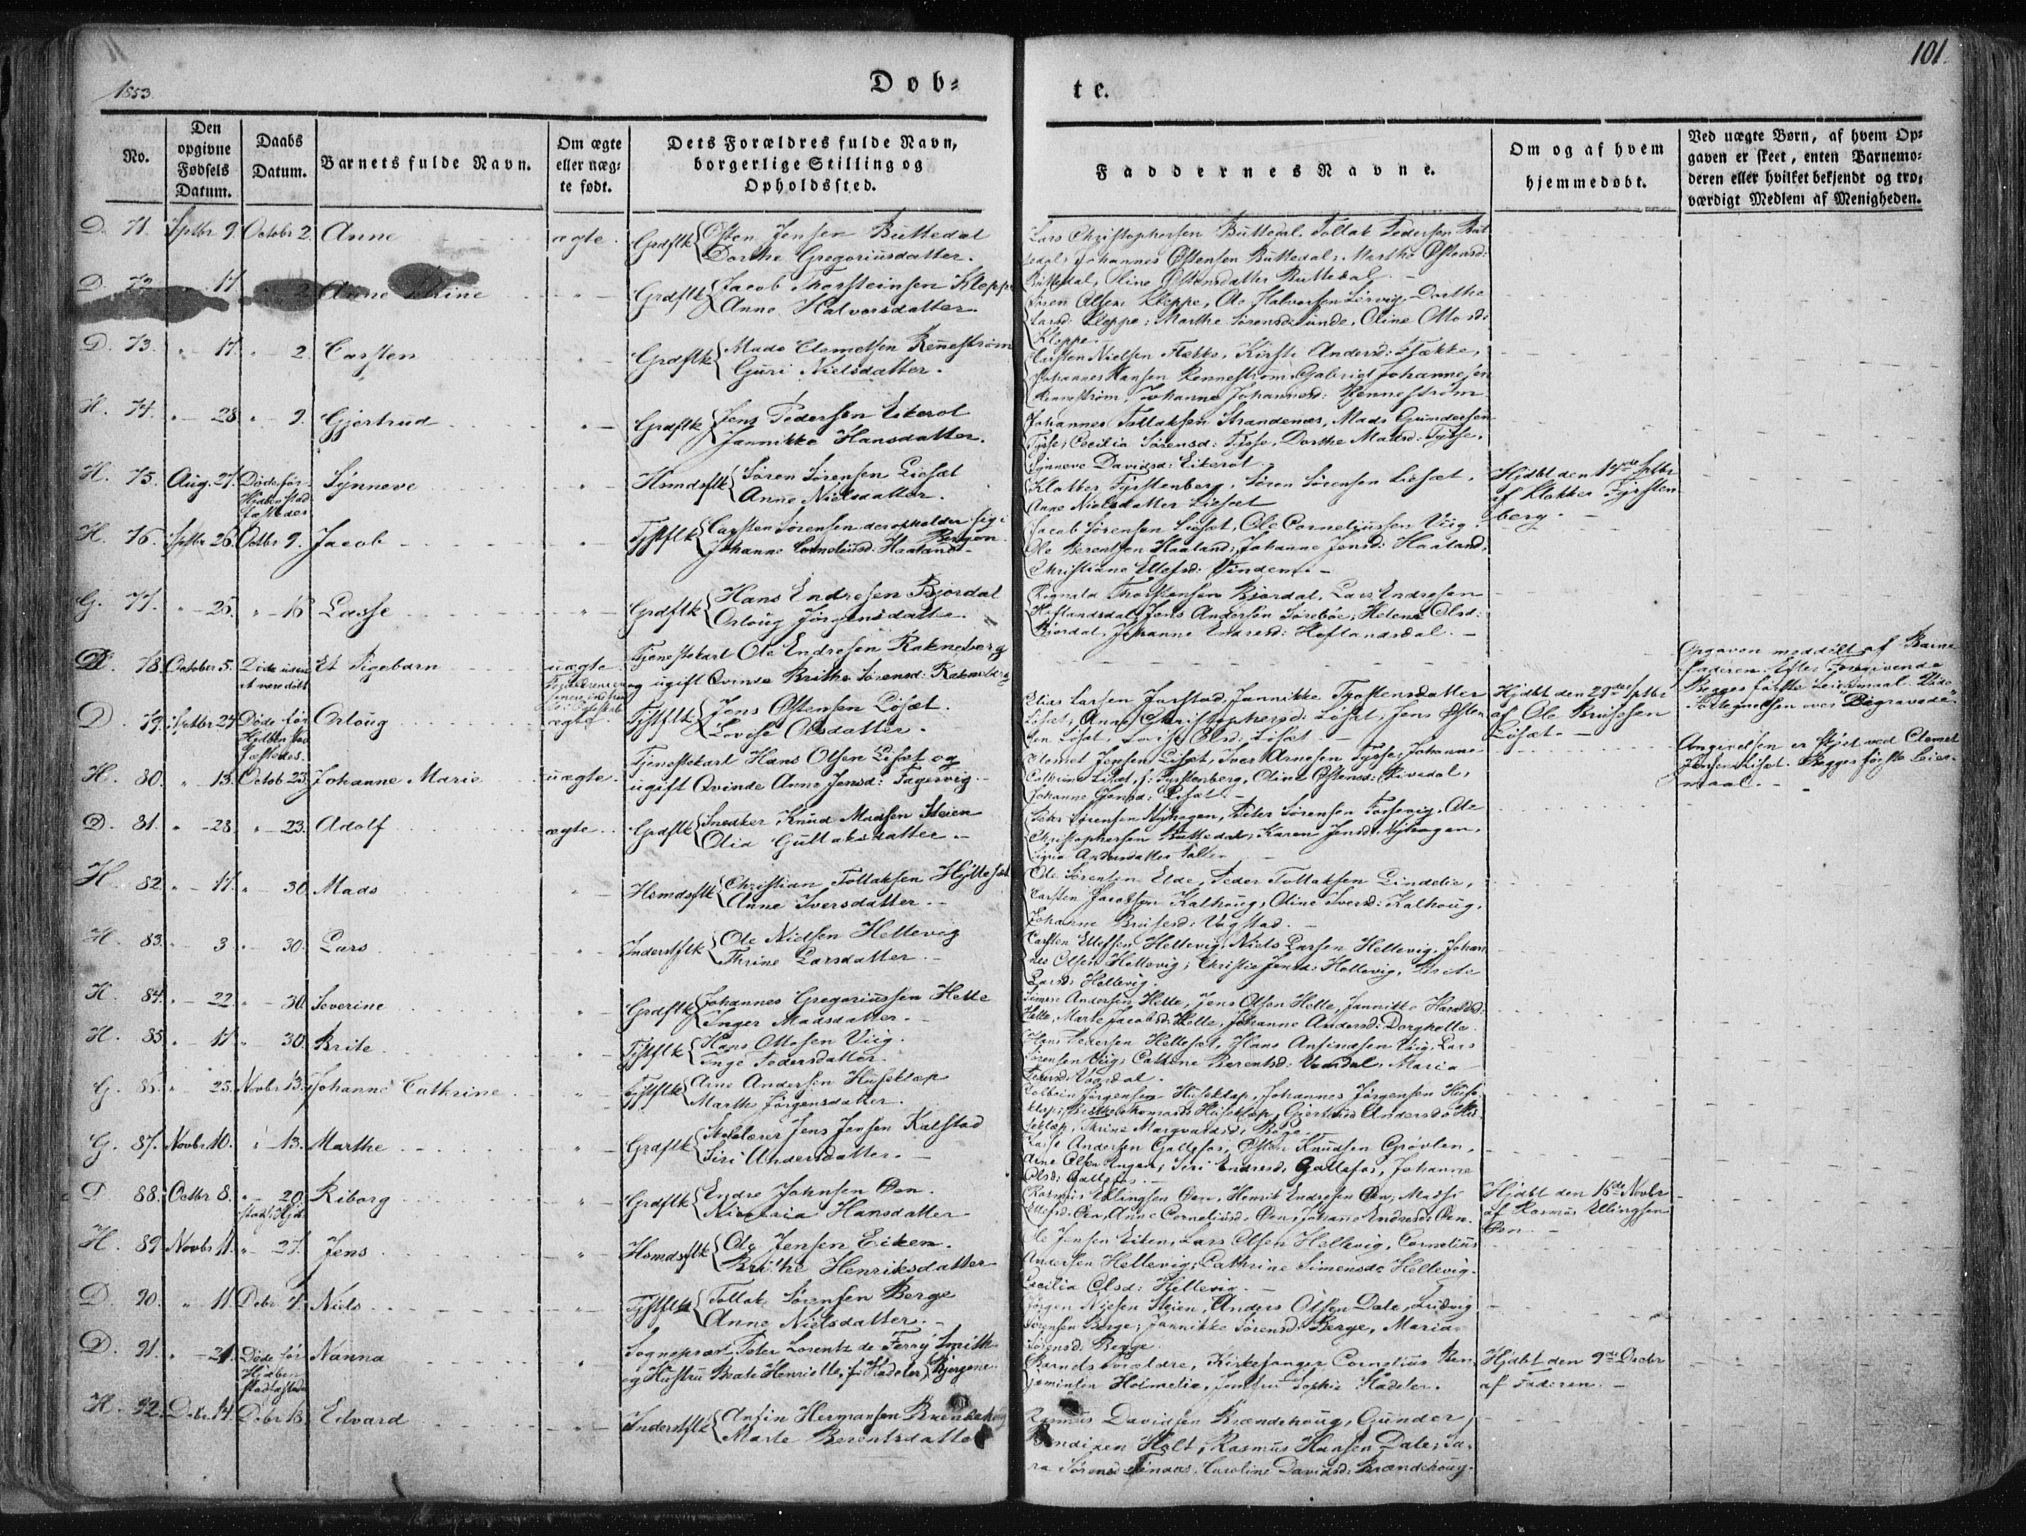 1853.
Døb-
te.
101.
No.
Den opgivne Fødsels Datum.
Daabs Datum.
Barnets fulde Navn.
Om ægte eller uæg- te født.
Dets Forældres fulde Navn, borgerlige Stilling og Opholdssted.
Faddernes Navne.
Om og af hvem hjemmedøbt.
Ved uægte Børn, af hvem Op- gaven er skeet, enten Barnemo- deren eller hvilket bekjendt og tro- værdigt Medlem af Menigheden.
D. 71. Septbr 9. Octobr 2. Anne ægte. Grdsflk Osten Jensen Buttedal
Dorthe Gregoriusdatter.
Lars Christophersen Buttedal, Tollak Pedersen But
tedal, Johannes Østensen Buttedal, Marthe Østensd:
Buttedal, Oline Østensdatter Buttedal.
D. 72. " 17 " 2. Anne Thrine " Grdsflk Jacob Thorsteinsen Kleppe
Anne Halvorsdatter.
Kleppe, Ole Halvorsen Leirvig, Dorthe
Larsd: Kleppe, Marthe Sørensd: Sünde, Oline
Kleppe.
D. 73. " 17 " 2. Carsten " Grdsflk Mads Clemetsen Rennestrøm
Guri Nielsdatter.
Carsten Nielsen Flække, Kirsti Andersd: Flække,
Johannes Hansen Rennestrøm, Gabriel Johannesen
Rennestrøm, Johanne Johannesd: Rennestrøm
H. 74. " 28 " 9. Gjertrud " Grdsflk Jens Pedersen Eikerol
Jannikke Hansdatter.
Johannes Tollaksen Strandenæs, Mads Gundersen
Tysse, Cecilia Sørensd: Tysse, Dorthe Madsd: Tysse,
Synneve Davidsd: Eikerol.
H. 75. Aug. 27. Døde før Hjdben stad fæstedes Synneve " Hsmdsflk Søren Sørensen Lisæt
Anne Nielsdatter.
Klokker Fyrstenberg, Søren Sørensen Lisæt,
Anne Nielsdatter Lisæt
Hjdbt den 14de Septbr
af Klokker Fyrsten
berg.
H. 76. Septbr 26. Octbr 9. Jacob " Tjstflk Carsten Sørensen der opholder sig i
Bergen
Johanne Corneliusd: Haaland
Jacob Sørensen Lisæt, Ole Corneliussen Viig,
Ole Berentsen Haaland, Johanne Jensd: Haaland,
Christiane Ellefsd: Vindem.
G. 77. " 25. " 16 Lasse " Grdsflk Hans Endresen Bjordal
Ortoug Jørgensdatter
Rognald Thorstensen Bjordal, Lars Endresen
Høflandsdal, Jens Andersen Sørebøe, Helene Olsd:
Bjordal, Johanne Endresd: Høflandsdal.
78. October 5. Døde uden at være døbt Et Pigebarn uægte Tjenestekarl Ole Endresen Raknæberg
og ugift Qvinde Brithe Sørensd: Raknæberg
Opgaven meddelt af Barne
faderen efter Foregivende
Begges første Leiermaal.
D. 79. Septbr 24 Døde før Hjdben stad fæstedes. Ortoug ægte. Tjstflk Jens Ostensen Losæt.
Lovise Olsdatter.
Elias Larsen Jarstad, Jannikke Thorstensdatter
Losæt, Anne Christophersd: Losæt, Jens Østen
sen Losæt, Lovise Olsd: Losæt
Hjdbt den 29de Septbr
af Ole Brusesen
Losæt.
H. 80. " 13. Octob 23. Johanne Marie uægte. Tjenestekarl Hans Olsen Lisæt og
ugift Qvinde Anne Jensd: Fagervig.
Clemet Jensen Lisæt, Iver Arnesen Tysse, Johanne
Colbeinsd Lisæt, f. Fyrstenberg, Oline Østensd: Hivedal,
Johanne Jensd: Lisæt.
Angivelsen er skjet ved Clemet
Jensen Lisæt. Begges første Leier-
maal.
D. 81. " 28. " 23. Adolf ægte. Grdsflk Snedker Knud Madsen Steien
Olia Gullaksdatter.
Sørensen Nyhagen, Peter Sørensen Fosservig, Ole
Christophersen Buttedal, Karen Jensd: Nyhagen,
Andersdatter
H. 82. " 17. " 30. Mads " Hsmdsflk Christian Tollaksen Hyllesæt
Anne Iversdatter.
Ole Sørensen Elde, Peder Tollaksen Lindelie,
Carsten Jacobsen Kalhoug, Oline Iversd: Kalhoug,
Johanne Brusesd: Vagstad.
H. 83. " 3 " 30. Lars " Inderstflk Ole Nielsen Hellevig
Thrine Larsdatter.
Carsten Ellefsen Hellevig, Niels Larsen Hellevig, Johan
nes Olsen Hellevig, Christie Jensd: Hellevig, Brite
Larsd: Hellevig.
H. 84. " 22. " 30. Severine " Grdsflk Johannes Gregoriussen Helle
Inger Madsdatter.
Simon Andersen Helle, Jens Olsen Helle, Jannikke Hansd:
Helle, Marte Jacobsd: Helle, Johanne Andersd: Dorgholle.
H. 85. " 17. " 30. Brite " Tjstflk Hans Ottosen Viig.
Inge Pedersdatter.
Hans Pedersen Hellesæt, Hans Anfindsen Viig, Lars
Sørensen Viig, Cathrine Berentsd: Vaardal, Maria
Pedersd: Vaardal.
G. 86. " 23. Novbr 13. Johanne Cathrine " Tjstflk Arne Andersen Huseklep
Marthe Jørgensdatter.
Colbein Jørgensen Huseklep, Johannes Jørgensen Huse
klep, Brithe Thomasd: Huseklep, Gjertrud Andersd: Hu
seklep, Thrine Margvaldsd: Bøge.
G. 87. Novbr 10. " 13. Marthe " Grdsflk Skolelærer Jens Jensen Kalstad
Siri Andersdatter.
Lasse Andersen Gallefos, Osten Knudsen Grøvlen,
Arne Olsen Unger, Siri Endresd: Gallefos, Johanne
Olsd: Gallefos.
D. 88. Octbr 8. " 20. stadf: Hjd: Riborg " Grdsflk Endre Johnsen Øen.
Nicoria Hansdatter.
Rasmus Ellingsen Øen, Henrik Endresen Øen, Madsi
Ellefsd: Øen, Anne Corneliusd: Øen, Johanne Endresd: Øen.
Hjdbt den 16de Novbr
af Rasmus Ellingsen
Øen
H. 89. Novbr 11. " 27. Jens " Hsmdsflk Ole Jensen Eiken.
Brithe Henriksdatter
Ole Jensen Eiken, Lars Olsen Hellevig, Cornelius
Andersen Hellevig, Cathrine Simensd: Hellevig.
Cecilia Olsd: Hellevig.
D. 90. " 11. Debr 4. Niels " Tjstflk Tollak Sørensen Berge
Anne Nielsdatter.
Jørgen Nielsen Steien, Anders Olsen Dale, Ludvig
Sørensen Berge, Jannikke Sørensd: Berge, Maria
Sørensd: Berge.
D. 91. " 21. Døde før Hjdben stadfæstedes Nanna " Sognepræst Peter Lorentz de Ferry Smith
og Hustru Beate Henriette, f. Hadeler, Bjergene
Barnets Forældre, Kirkesanger Cornelius Ben
jaminsen Holmelid, Jomfru Sophie Hadeler.
Hjdbt den 9de Decbr
af Faderen.
H. 92. Debr 14. Debr 18. Edvard " Inderstflk Anfin Hermansen Brændehoug
Marte Berentsdatter
Rasmus Davidsen Brændehoug, Gunder
Bendixen Holt, Rasmus Hansen Dale, Sa
ra Sørensd: Tenaas, Caroline Davidsd: Brændehoug.